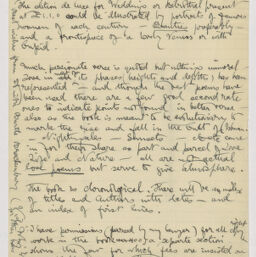 The edition de luxe for Weddings or
at £1.1.0 could be illustrated by portraits of famous
women of each century — beauties preferably
and a frontispiece of a lovely Venus or with
Cupid.
Much passionate verse is quoted but nothing unmoral
Love in all its phases, heights and depths, has been
represented — and though the best poems have
been used there are a few good second rate
ones to indicate points not found in better verse
also as the book is meant to be exhilarating to
mark the gaie and fall in the
— Nightingales — Sunsets — clouds come
in for their share as part and parcel of Love
Life and Nature — all are poetical
poems but serve to give atmosphere.
The book is chronological. There will be an index
of titles and authors with dates — and
an index of first lines.
I have permissions (passed by my lawyer) for all
works in the book a separate section
shows the for which fees are